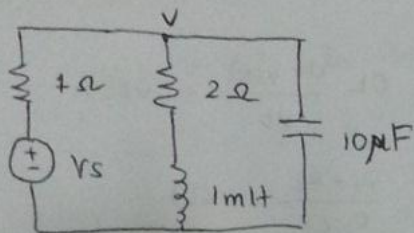 V
2Ω
10µF
Vs
1mH